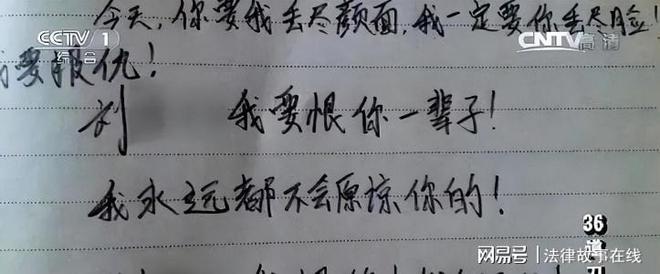 今天,你要我丢尽颜面,我一定要你丢尽脸!
CCTV 1
综合
CNTV 高清
我要报仇!
刘 我要恨你一辈子!
我永远都不会原谅你的!
36
道
网易号 | 法律故事在线